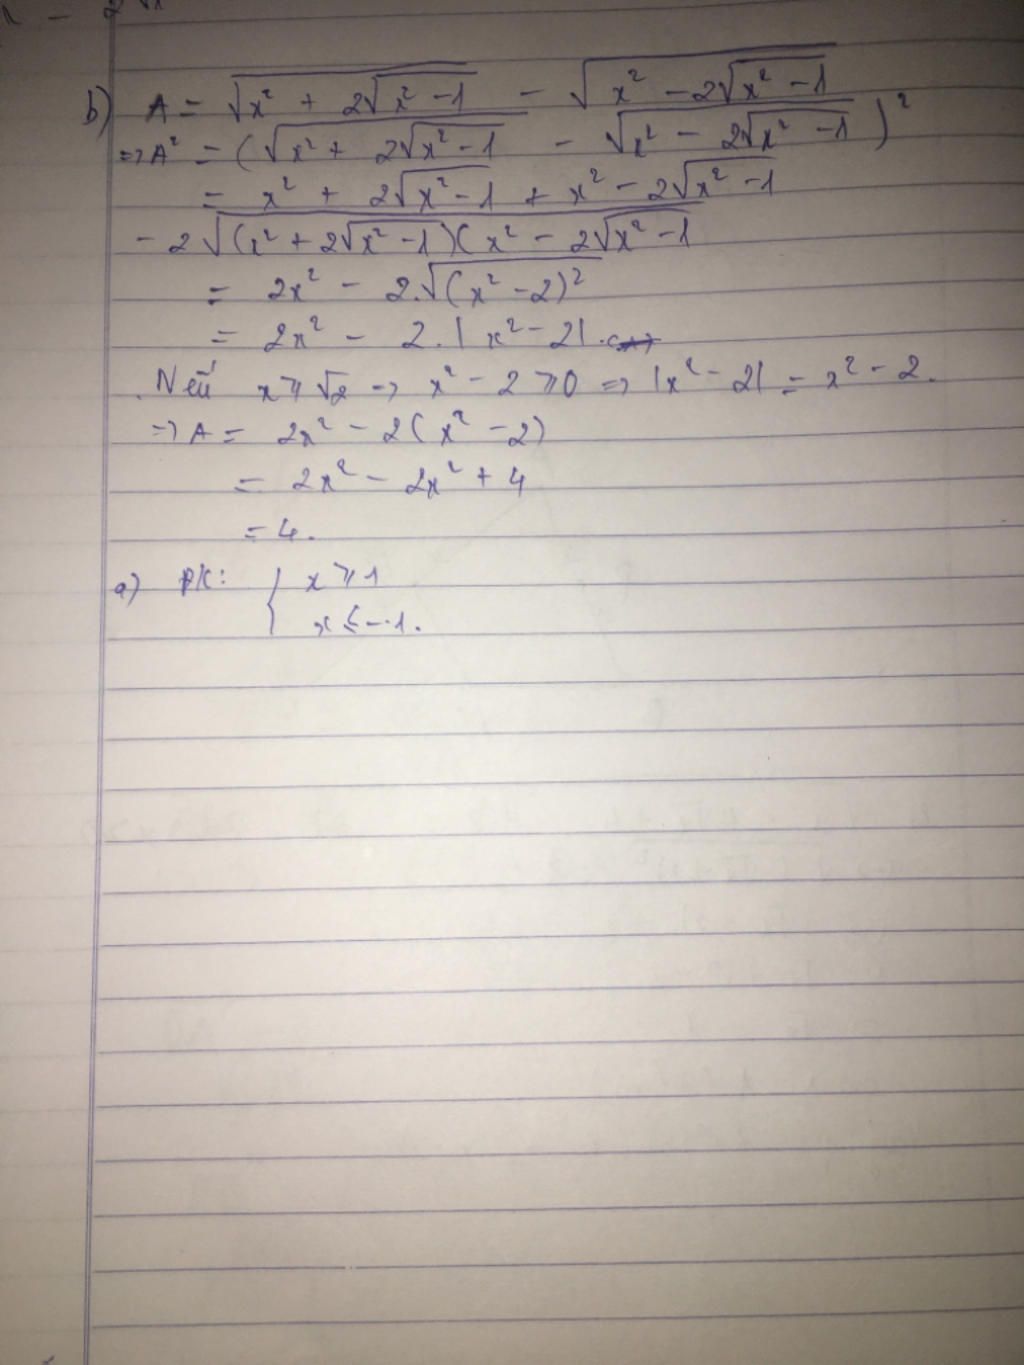 b) A = √(x² + 2√(x² - 1)) - √(x² - 2√(x² - 1))
=> A² = (√(x² + 2√(x² - 1)) - √(x² - 2√(x² - 1)))²
= x² + 2√(x² - 1) + x² - 2√(x² - 1)
- 2√((x² + 2√(x² - 1))(x² - 2√(x² - 1))
= 2x² - 2.√((x² - 2)²)
= 2x² - 2.|x² - 2|.
. Nếu x ≥ √2 => x² - 2 ≥ 0 => |x² - 2| = x² - 2.
=> A = 2x² - 2(x² - 2)
= 2x² - 2x² + 4
= 4.
a) ĐK: { x ≥ 1
x ≤ -1.